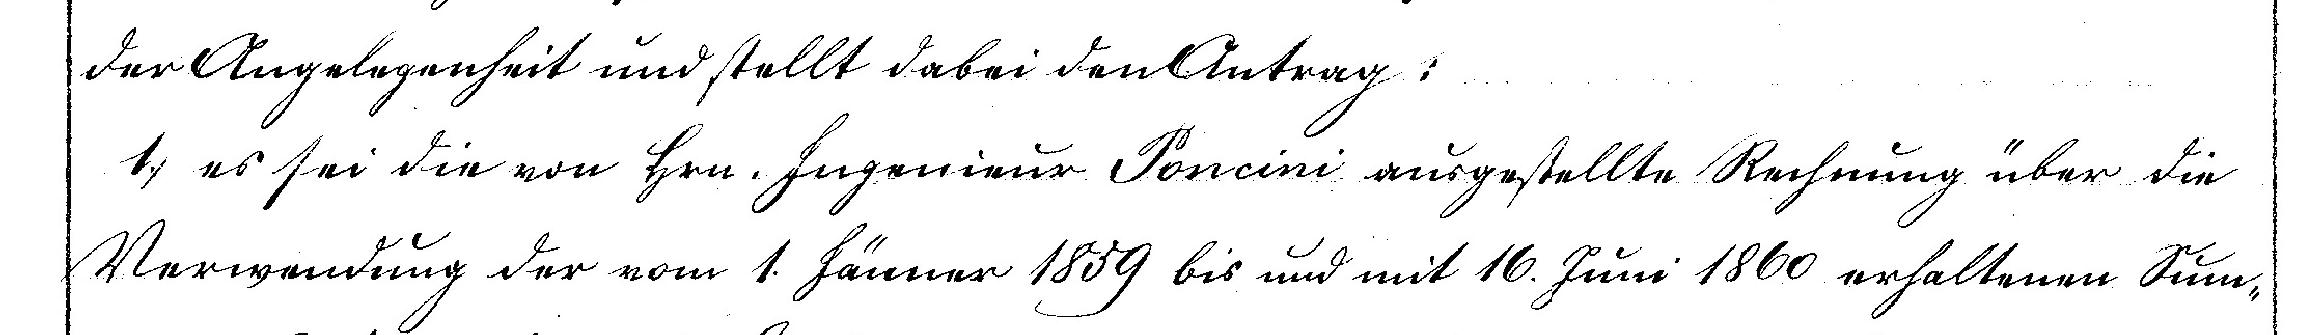 der Angelegenheit und stellt dabei den Antrag:
1, es sei die von Hrn. Ingenieur Poncini ausgestellte Rechnung über die
Verwendung der vom 1. Jänner 1859 bis und mit 16. Juni 1860 erhaltenen Sum„